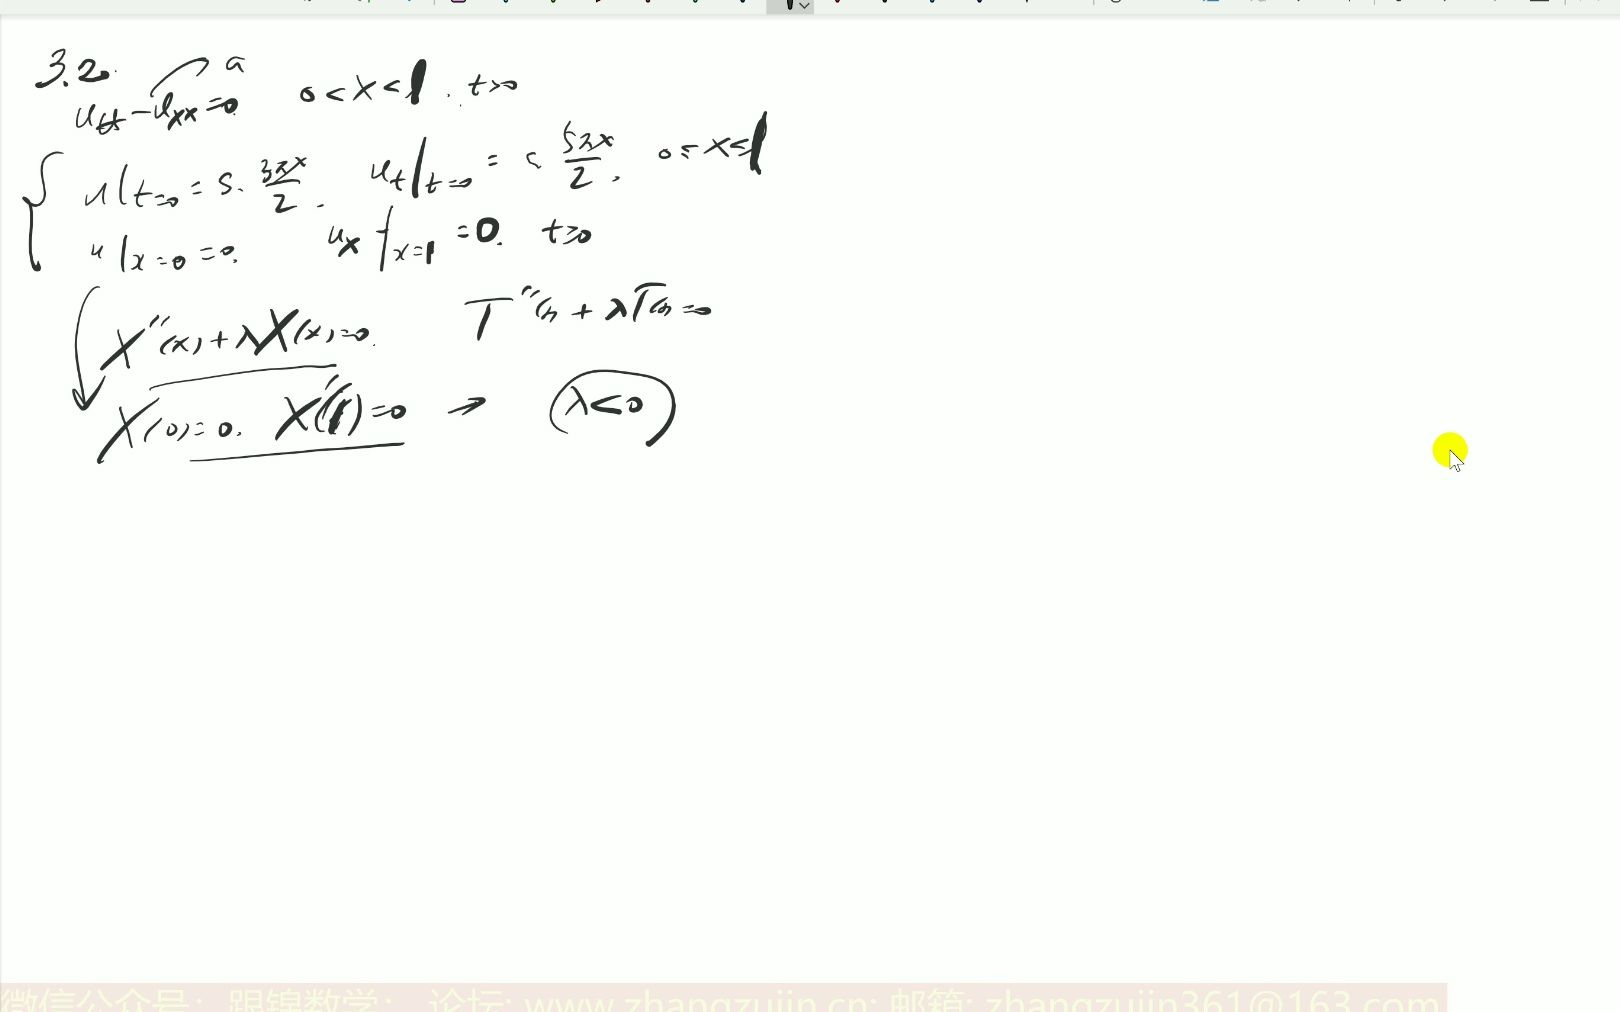 3.2. a
u_tt - u_xx = 0 0 < x < 1, t > 0
u|_{t=0} = s. 3πx/2, u_t|_{t=0} = s 5πx/2, 0 ≤ x ≤ 1
u|_{x=0} = 0, u_x|_{x=1} = 0, t ≥ 0
X''(x) + λX(x) = 0. T''(t) + λT(t) = 0
X(0) = 0. X'(1) = 0 → λ < 0
微信公众号: 跟锦数学; 论坛: www.zhangzujin.cn; 邮箱: zhangzujin361@163.com